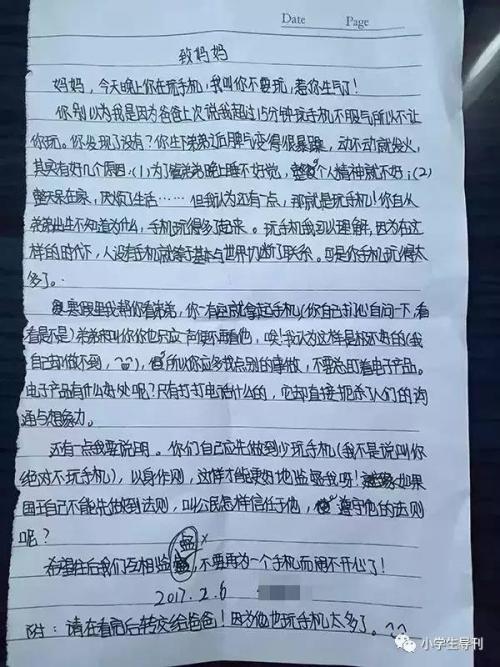 Date Page
致妈妈
妈妈，今天晚上你在玩手机，我叫你不要玩，惹你生气了！
你别以为我是因为爸爸上次说我超过15分钟玩手机不服气所以不让
你玩。你发现了没有？你生下弟弟后脾气变得很暴躁，动不动就发火，
其实有好几个原因：（1）为了管弟弟晚上睡不好觉，整个人精神就不好；（2）
整天呆在家，厌烦了生活……但我认为还有一点，那就是玩手机！你自从
弟弟出生不知道为什么，手机玩得多了起来。玩手机我可以理解，因为在这
样的时代下，人没有手机就等于基本与世界切断了联系。可是你手机玩得太
多了。
里我帮你看弟弟，你一有空就拿起手机（你自己扪心自问一下，看
看是不是）弟弟叫你你也只应一声便不再看他，唉！我认为这样是很不好的（我
自己却做不到，），所以你应多找点别的事做，不要总盯着电子产品。
电子产品有什么好处呢？只有打打电话什么的，它却直接扼杀了人们的沟
通与想象力。
还有一点我要说明。你们自己应先做到少玩手机（我不是说叫你
绝对不玩手机），以身作则，这样才能更好地监督我呀！如果
国王自己不能先做到法则，叫公民怎样信任他，遵守他的法则
呢？
希望往后我们互相监督，不要再为一个手机而闹不开心了！
2017.2.6
附：请在看完后转交给爸爸！因为他也玩手机太多了。
小学生导刊